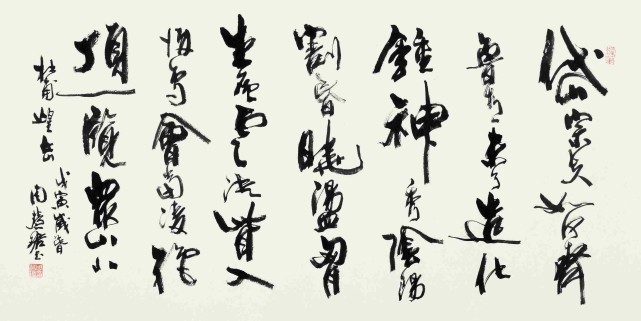 岱宗夫如何齊
魯青未了造化
鍾神秀陰陽
割昏曉盪胸
生層雲決眥入
歸鳥會當凌絕
頂一覽眾山小
杜甫望岳
戊寅歲春
周慧珺